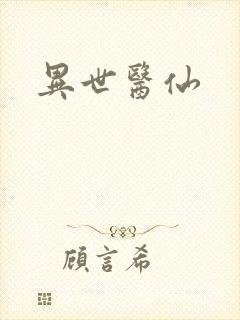 異世醫仙
顧言希